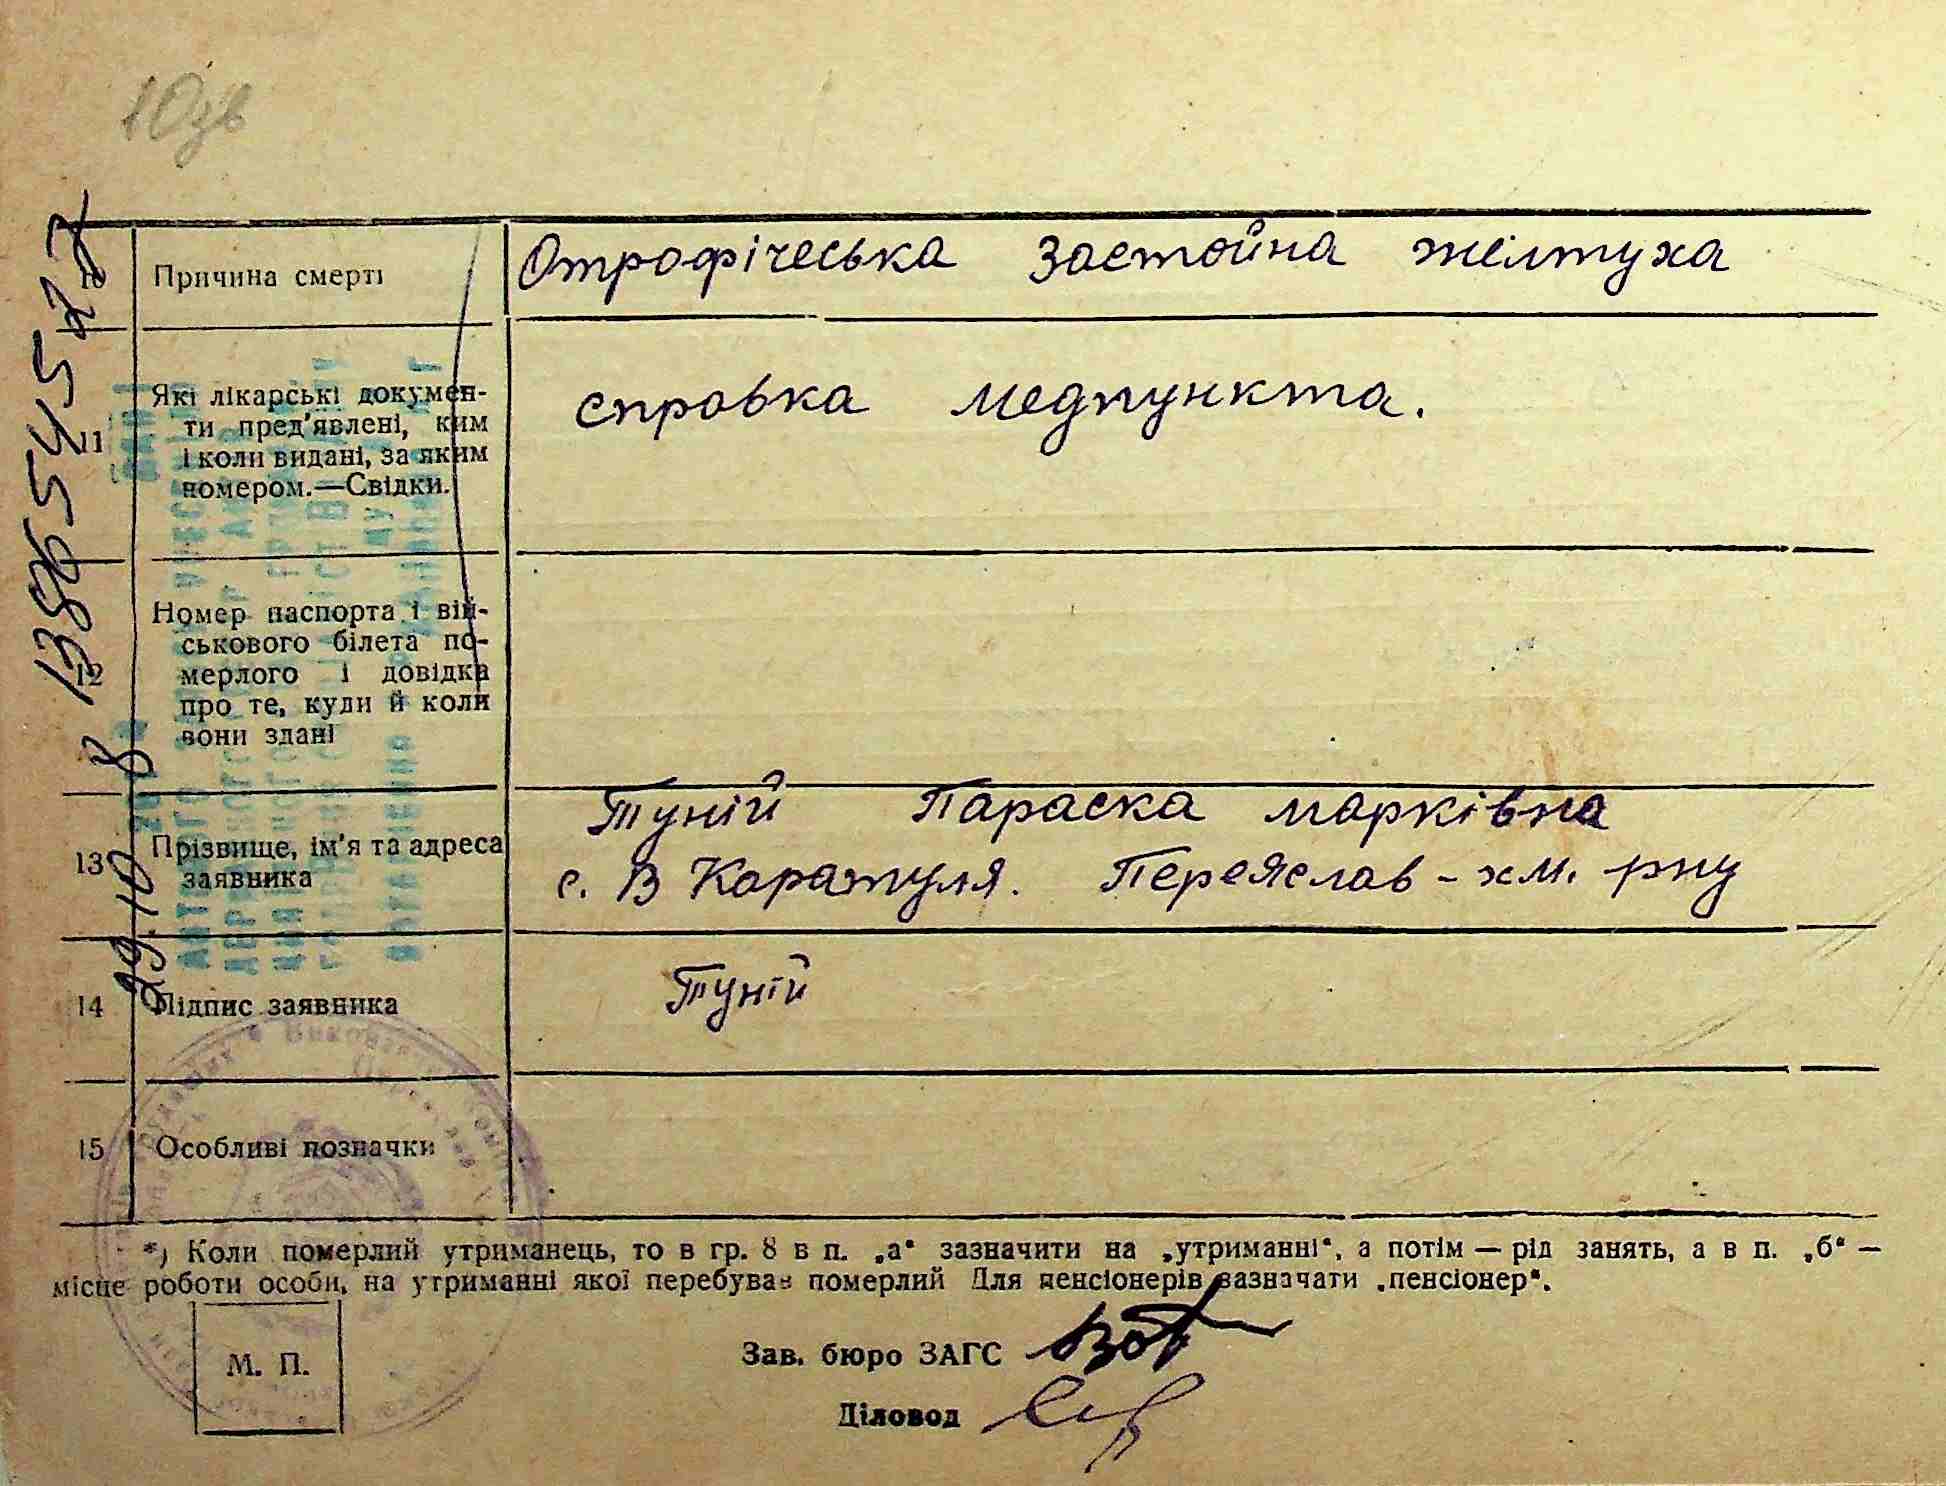 10зв
10 Причина смерті Отрофічеська Застойна желтуха
11 Які лікарські докумен-
ти пред'явлені, ким
і коли видані, за яким
номером.—Свідки.
справка медпункта.
12 Номер паспорта і вій-
ськового білета по-
мерлого і довідка
про те, куди й коли
вони здані
13 Прізвище, ім'я та адреса
заявника
Туній Параска марківна
с. В Каратуля. Переяслав-хм. рну
14 Підпис заявника Туній
15 Особливі позначки
*) Коли померлий утриманець, то в гр. 8 в п. „а“ зазначити на „утриманні“, а потім — рід занять, а в п. „б“ —
місце роботи особи, на утриманні якої перебував померлий Для пенсіонерів зазначати „пенсіонер“.
М. П.
Зав. бюро ЗАГС
Діловод